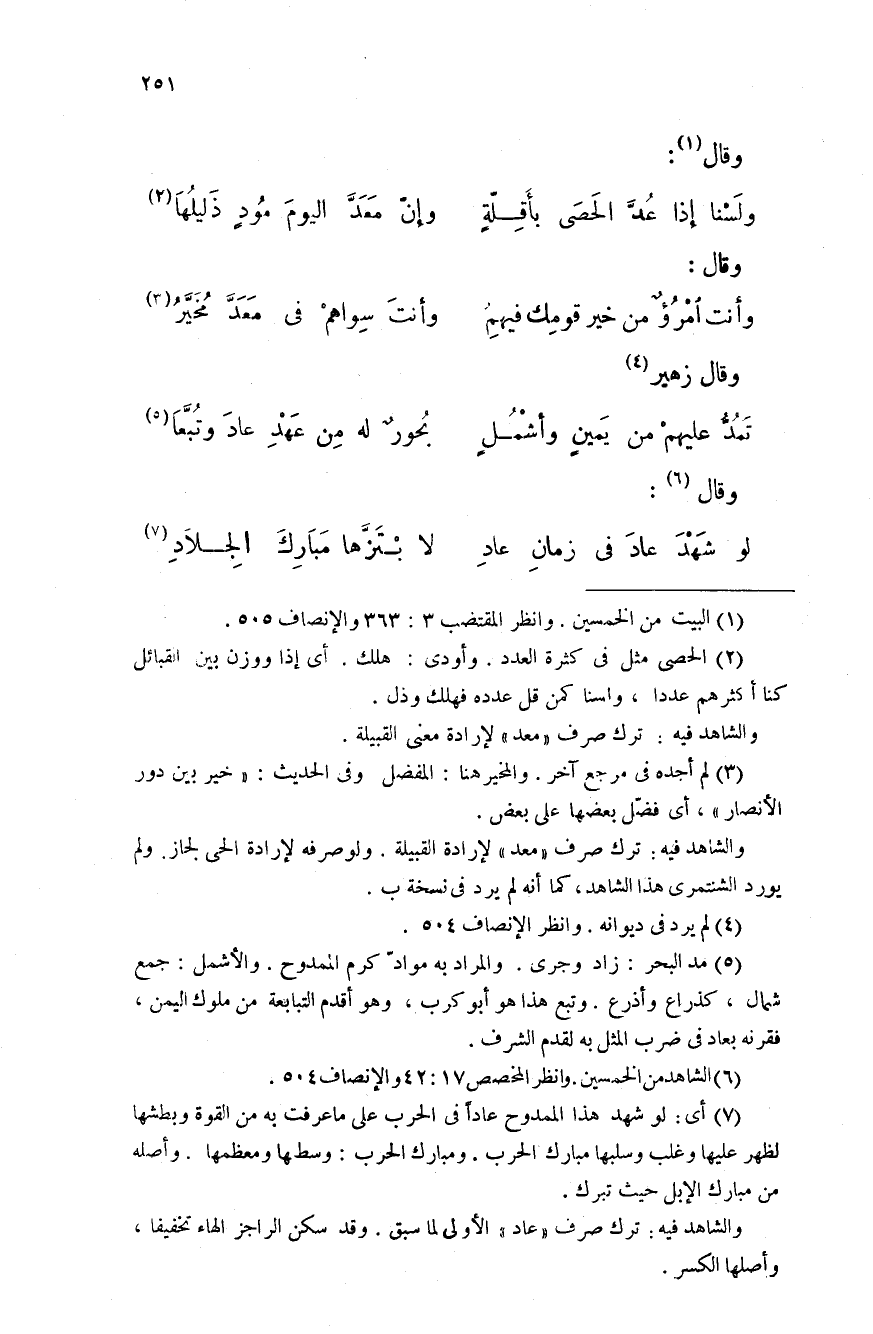 ٢٥١
وقال(١):
ولَسْنا إذا عُدَّ الحَصَى بأَقِــلّةٍ وإنّ مَعَدَّ اليومَ مُودٍ ذَليلُها(٢)
وقال :
وأنت ٱمْرُؤٌ من خير قومِك فيهمُ وأنتَ سِواهمْ فى مَعَدَّ مُخَيَّرُ(٣)
وقال زهير(٤)
تَمُدُّ عليهمْ من يَمينٍ وأشْمُــلٍ بُحورٌ له مِن عَهْدِ عادَ وتُبَّعَا(٥)
وقال(٦) :
لو شَهْدَ عادَ فى زمانِ عادِ لا بْـتَزَّها مَبَارِكَ الِجــلاَدِ(٧)
(١) البيت من الخمسين . وانظر المقتضب ٣ : ٣٦٣ والإنصاف ٥٠٥ .
(٢) الحصى مثل فى كثرة العدد . وأودى : هلك . أى إذا ووزن بين القبائل
كنا أكثرهم عددا ، ولسنا كمن قل عدده فهلك وذل .
والشاهد فيه : ترك صرف «معد» لإرادة معنى القبيلة .
(٣) لم أجده فى مرجع آخر . والمخير هنا : المفضل وفى الحديث : « خير بين دور
الأنصار » ، أى فضّل بعضها على بعض .
والشاهد فيه : ترك صرف «معد» لإرادة القبيلة . ولو صرفه لإرادة الحى لجاز . ولم
يورد الشنتمرى هذا الشاهد، كما أنه لم يرد فى نسخة ب .
(٤) لم يرد فى ديوانه . وانظر الإنصاف ٥٠٤ .
(٥) مد البحر : زاد وجرى . والمراد به موادّ كرم الممدوح . والأشمل : جمع
شمال ، كذراع وأذرع . وتبع هذا هو أبو كرب ، وهو أقدم التبابعة من ملوك اليمن ،
فقرنه بعاد فى ضرب المثل به لقدم الشرف .
(٦) الشاهد من الخمسين . وانظر المخصص ١٧ : ٤٢ والإنصاف ٥٠٤ .
(٧) أى : لو شهد هذا الممدوح عاداً فى الحرب على ما عرفت به من القوة وبطشها
لظهر عليها وغلب وسلبها مبارك الحرب . ومبارك الحرب : وسطها ومعظمها . وأصله
من مبارك الإبل حيث تبرك .
والشاهد فيه : ترك صرف «عاد» الأولى لما سبق . وقد سكن الراجز الهاء تخفيفا ،
وأصلها الكسر .